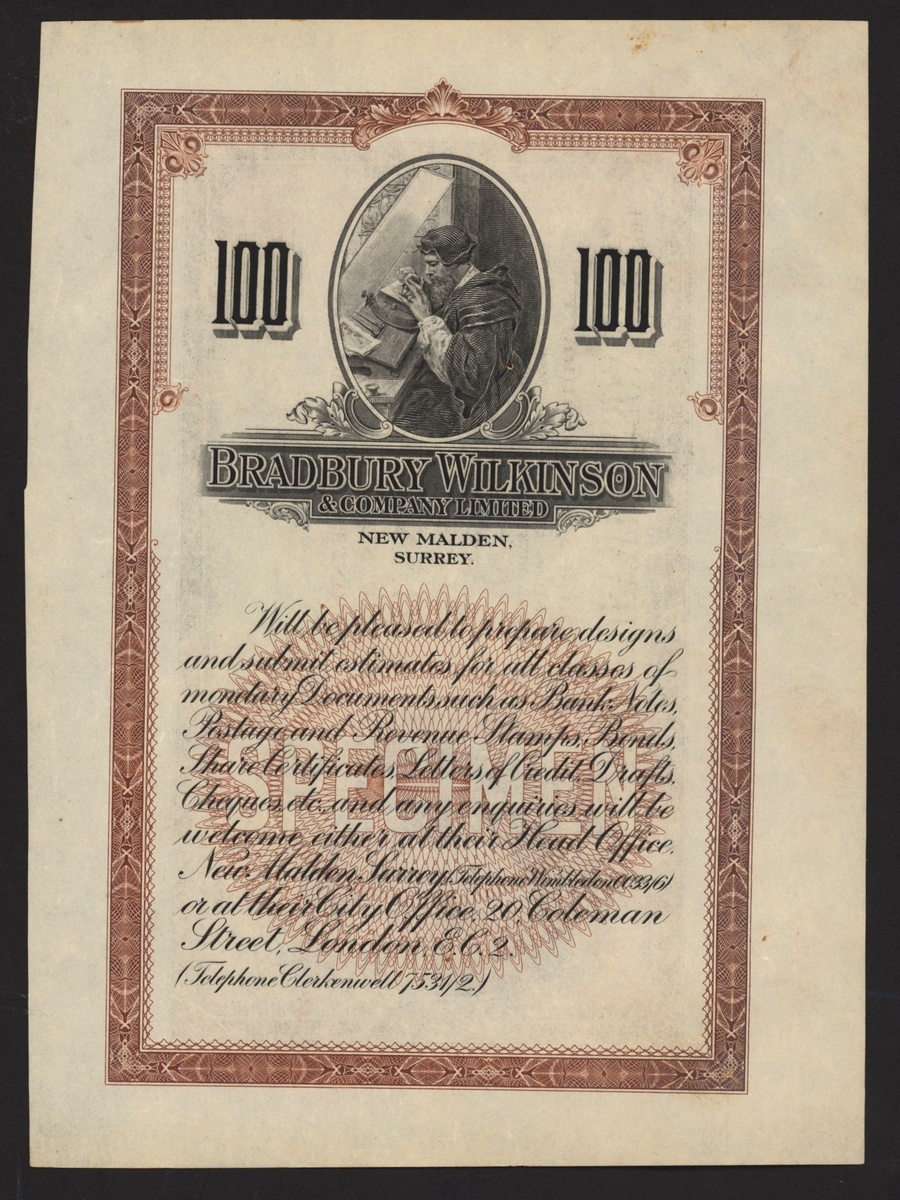 100 100
BRADBURY WILKINSON
& COMPANY LIMITED
NEW MALDEN,
SURREY.
Will be pleased to prepare designs
and submit estimates for all classes of
monetary Documents such as Bank Notes,
Postage and Revenue Stamps, Bonds,
Share Certificates, Letters of Credit, Drafts,
Cheques, etc., and any enquiries will be
welcome either at their Head Office,
New Malden, Surrey, (Telephone Wimbledon 0033/6)
or at their City Office, 20, Coleman
Street, London, E.C.2.
(Telephone Clerkenwell 7531/2.)
SPECIMEN